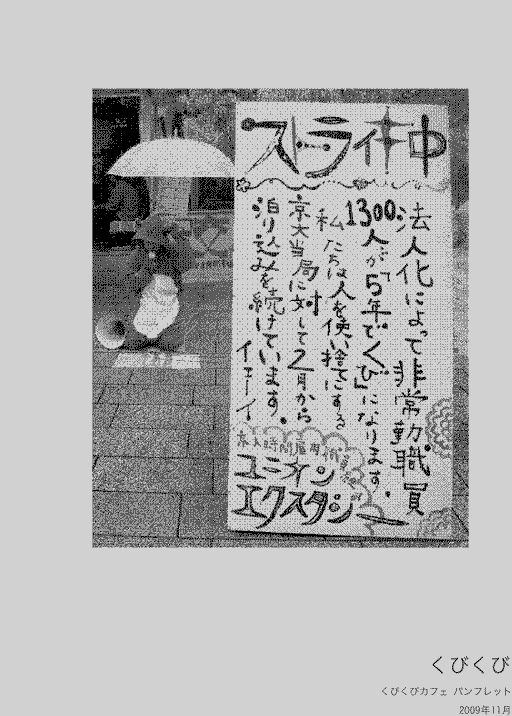 ストライキ中
法人化によって非常勤職員
1300人が「5年でくび」になります。
私たちは人を使い捨てにする
京大当局に対して2月から
泊り込みを続けています。
イエーイ
京大時間雇用職員組合
ユニオン
エクスタシー
くびくび
くびくびカフェ パンフレット
2009年11月